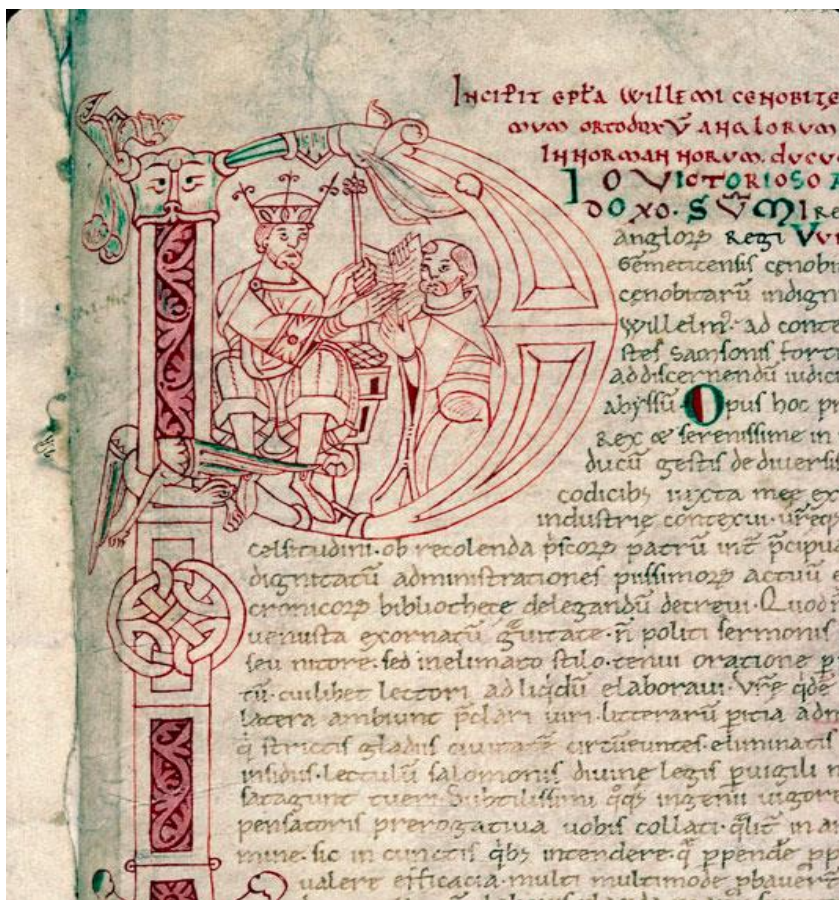 INCIPIT EPLA WILLEMI CENOBITE
MUM ORTODOXŪ ANGLORUM
IN NORMANNORUM. DUCU
IO VICTORIOSO A
DOXO. SŪMI RE
anglorꝝ REGI VVI
Gemeticensis cenobi
cenobitarū indign
Willelm᷒. ad conte
stes Samsonis forti
ad discernendū iudici
abyssū. Opus hoc p
Rex & serenissime in
ducū gestis de diuersis
codicibꝫ iuxta mee ex
industrię contexui. ur̄e
celsitudini. ob recolenda pͥscoꝝ patrū int̄ p̄cipua
dignitatū administrationes piissimoꝝ actuū e
cronicoꝝ bibliothece delegandū decreui. Quod
uenusta exornatū g̾uitate. n̄ politi sermonis
seu nitore. sed inelimato stilo. tenui oratione p
tū. cuilibet lectori ad liqͥdū elaboraui. Vr̄e qͥdē
latera ambiunt p̄clari uiri. litterarū pͥtia adm
q̇ strictis gladiis ciuitatē circūeuntes. eliminatis
insidiis. lectulū salomonis diuine legis puigili
satagunt tueri. Subtilissimi ingenii uigore
pensatoris prerogatiua uobis collati. qͣlit̄ in
mine. sic in cunctis qͥbꝫ intendere. ppende
ualere efficacia. multi multimode pbauer̄